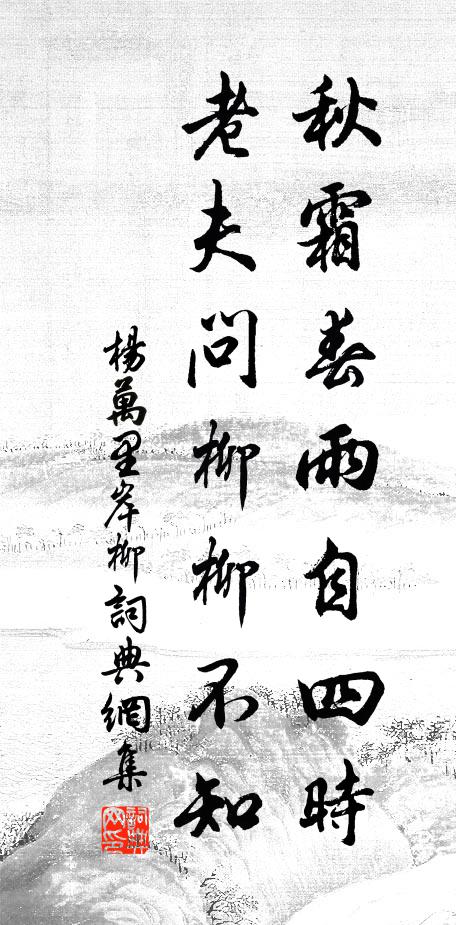 秋霜春雨自四時
老夫問柳柳不知
楊萬里岸柳詞典網集
詞典网印